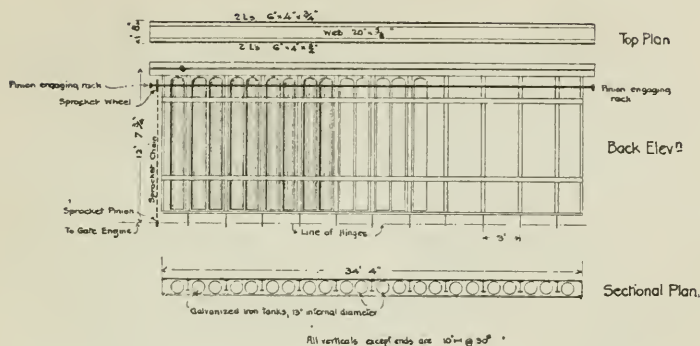 2 Ls 6" × 4" × 3/4"
Web 20" ×
2 Ls 6" × 4" × 1/2"
Top Plan
Pinion engaging rack
Sprocket Wheel
Pinion engaging
rack
12' 7 3/4"
Sprocket Chain
Back Elevn
Sprocket Pinion
To Gate Engine
Line of Hinges
34' 4"
Sectional Plan.
Galvanized iron tanks, 13" internal diameter
All verticals except ends are 10" @ 30#